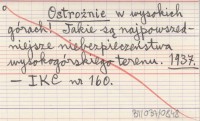 Ostrożnie w wysokich
górach! Jakie są najpoważ-
niejsze niebezpieczeństwa
wysokogórskiego terenu. 1937.
— IKC nr 160.